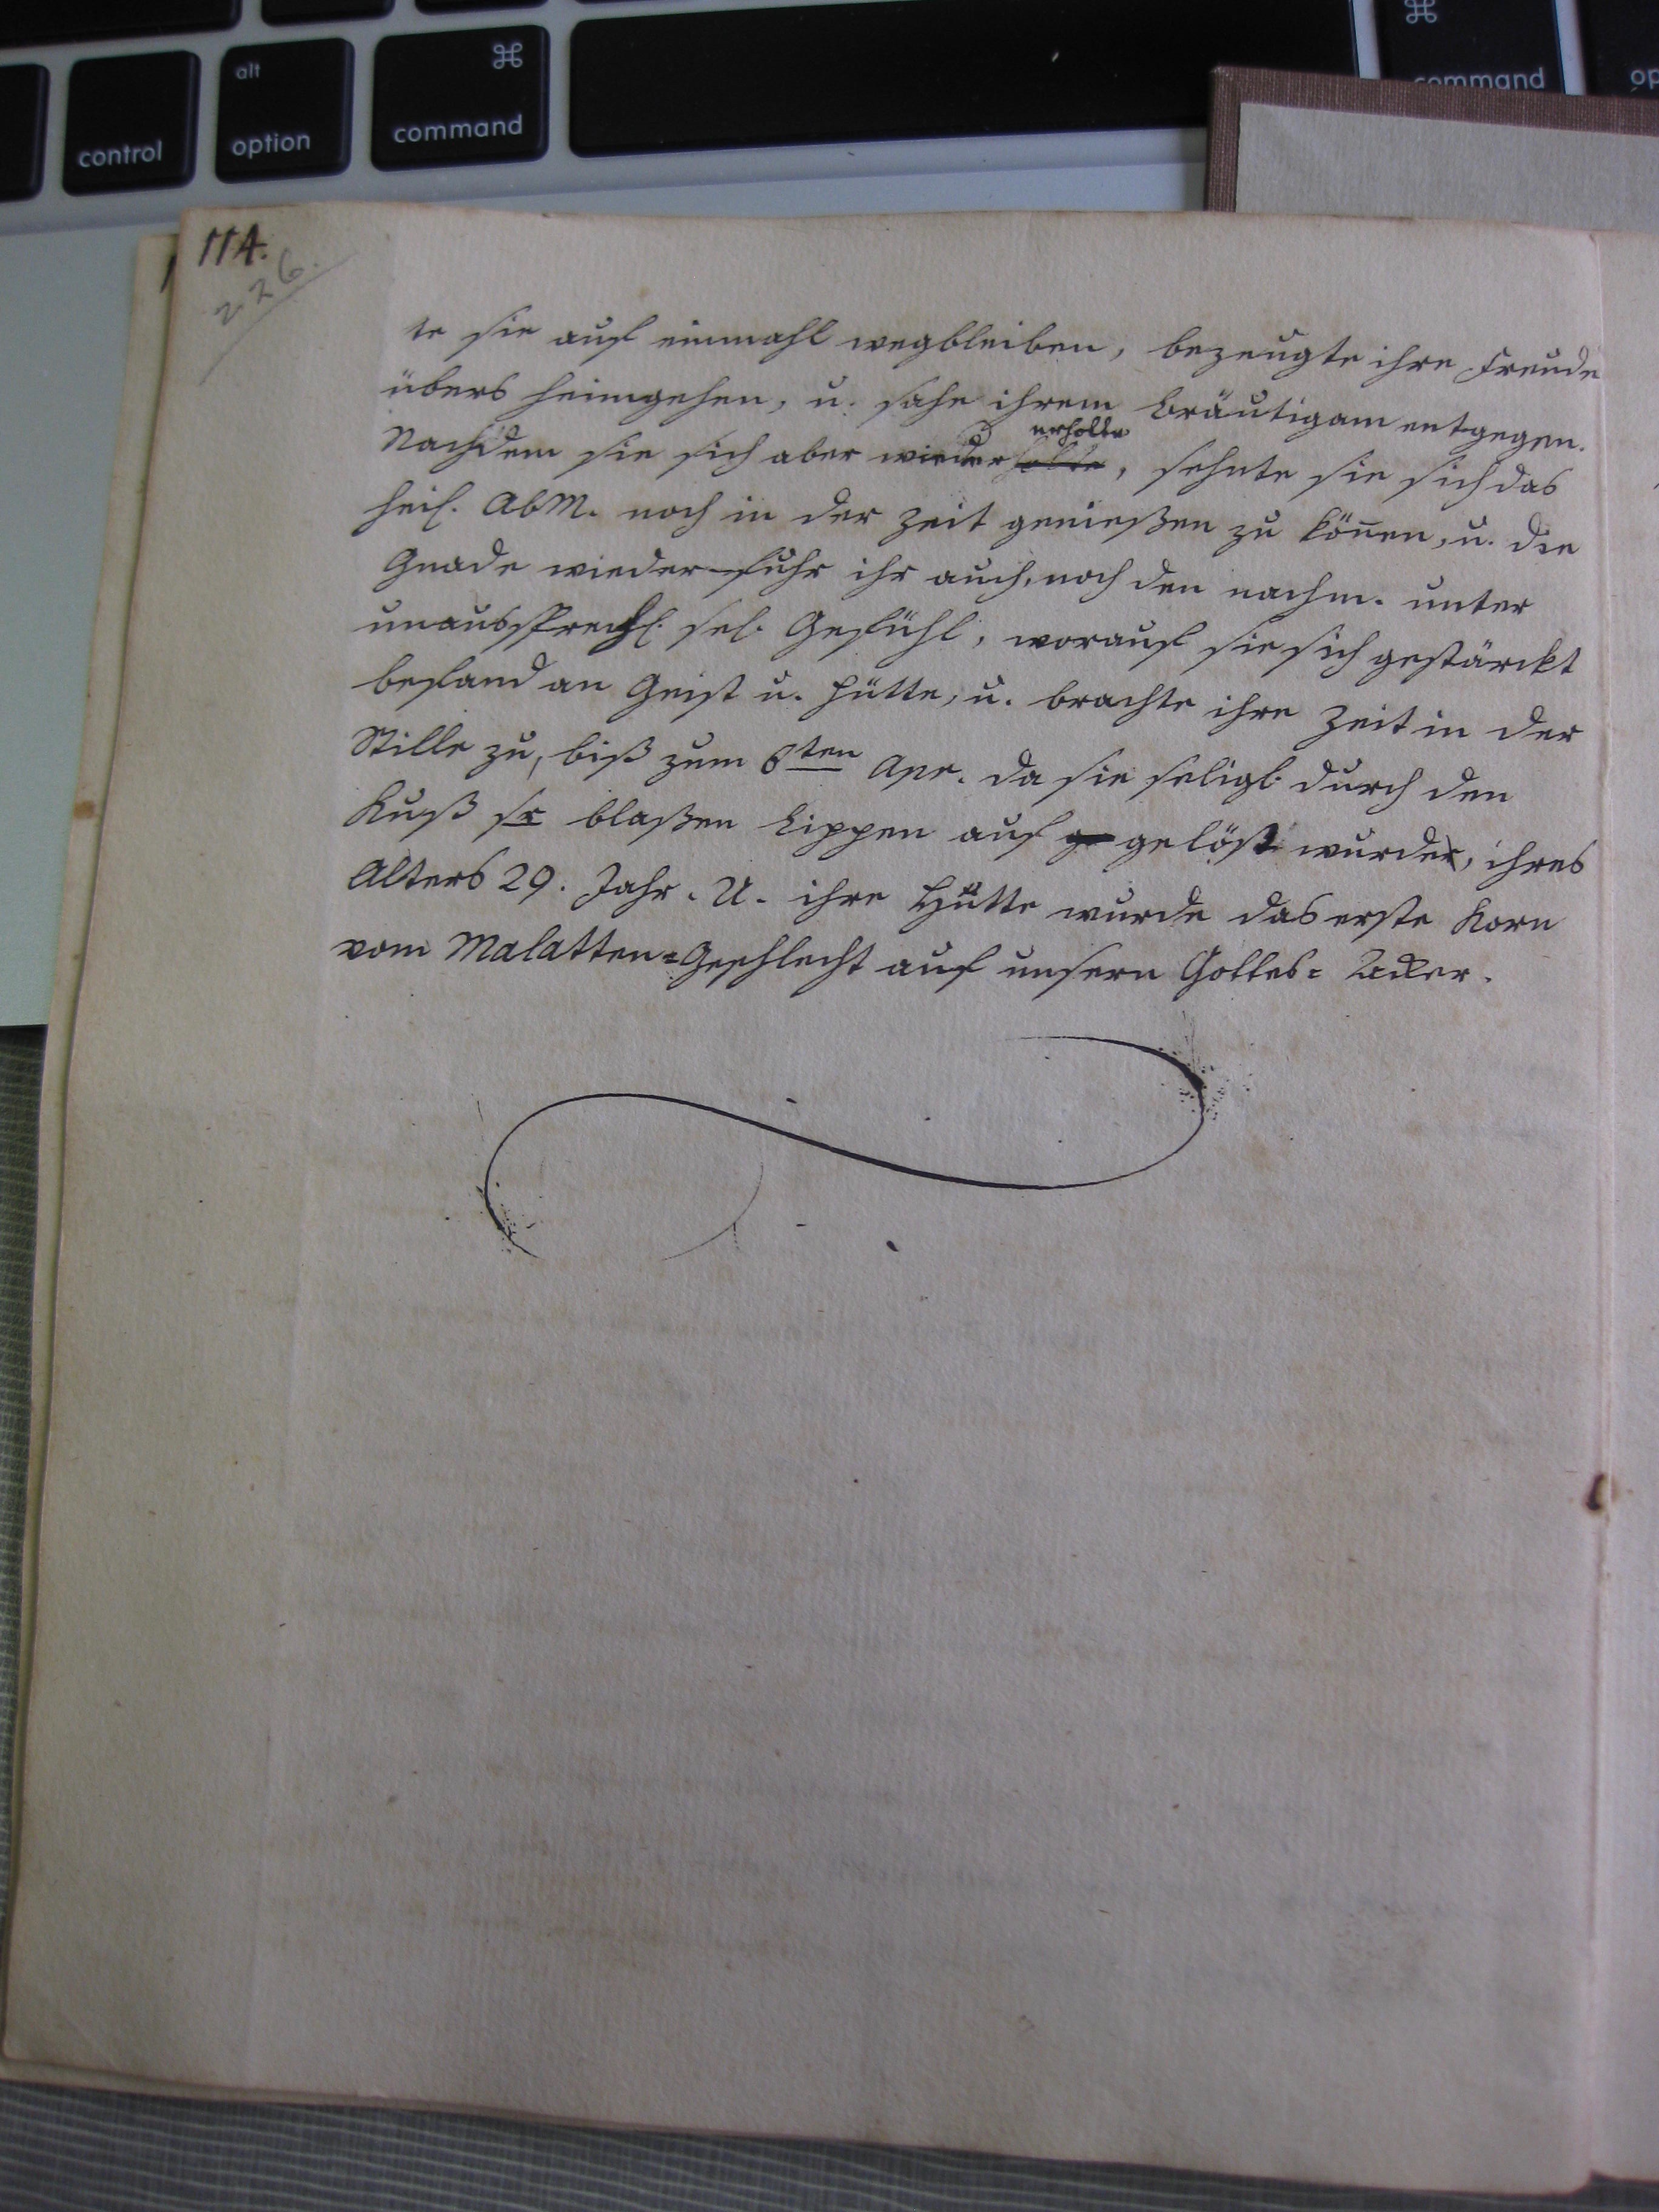 alt
⌘
⌘
control
option
command
command
op
114.
226.
te sie auf einmahl wegbleiben, bezeugte ihre Freude
übers heimgehen, u. sahe ihrem Bräutigam entgegen.
erholte
Nachdem sie sich aber wieder holte, sehnte sie sich das
heil. AbM. noch in der Zeit genießen zu kön̄en, u. die
Gnade wieder-fuhr ihr auch, noch den nachm. unter
unaussprechl. sel. Gefühl, worauf sie sich gestärckt
befand an Geist u. Hütte, u. brachte ihre Zeit in der
Stille zu, biß zum 8ten Apr. da sie seligl. durch den
Kuß sr blaßen Lippen auf ge gelöst wurde, ihres
Alters 29. Jahr. U. ihre Hütte wurde das erste Korn
vom Malatten=Geschlecht auf unsern Gottes= Acker.